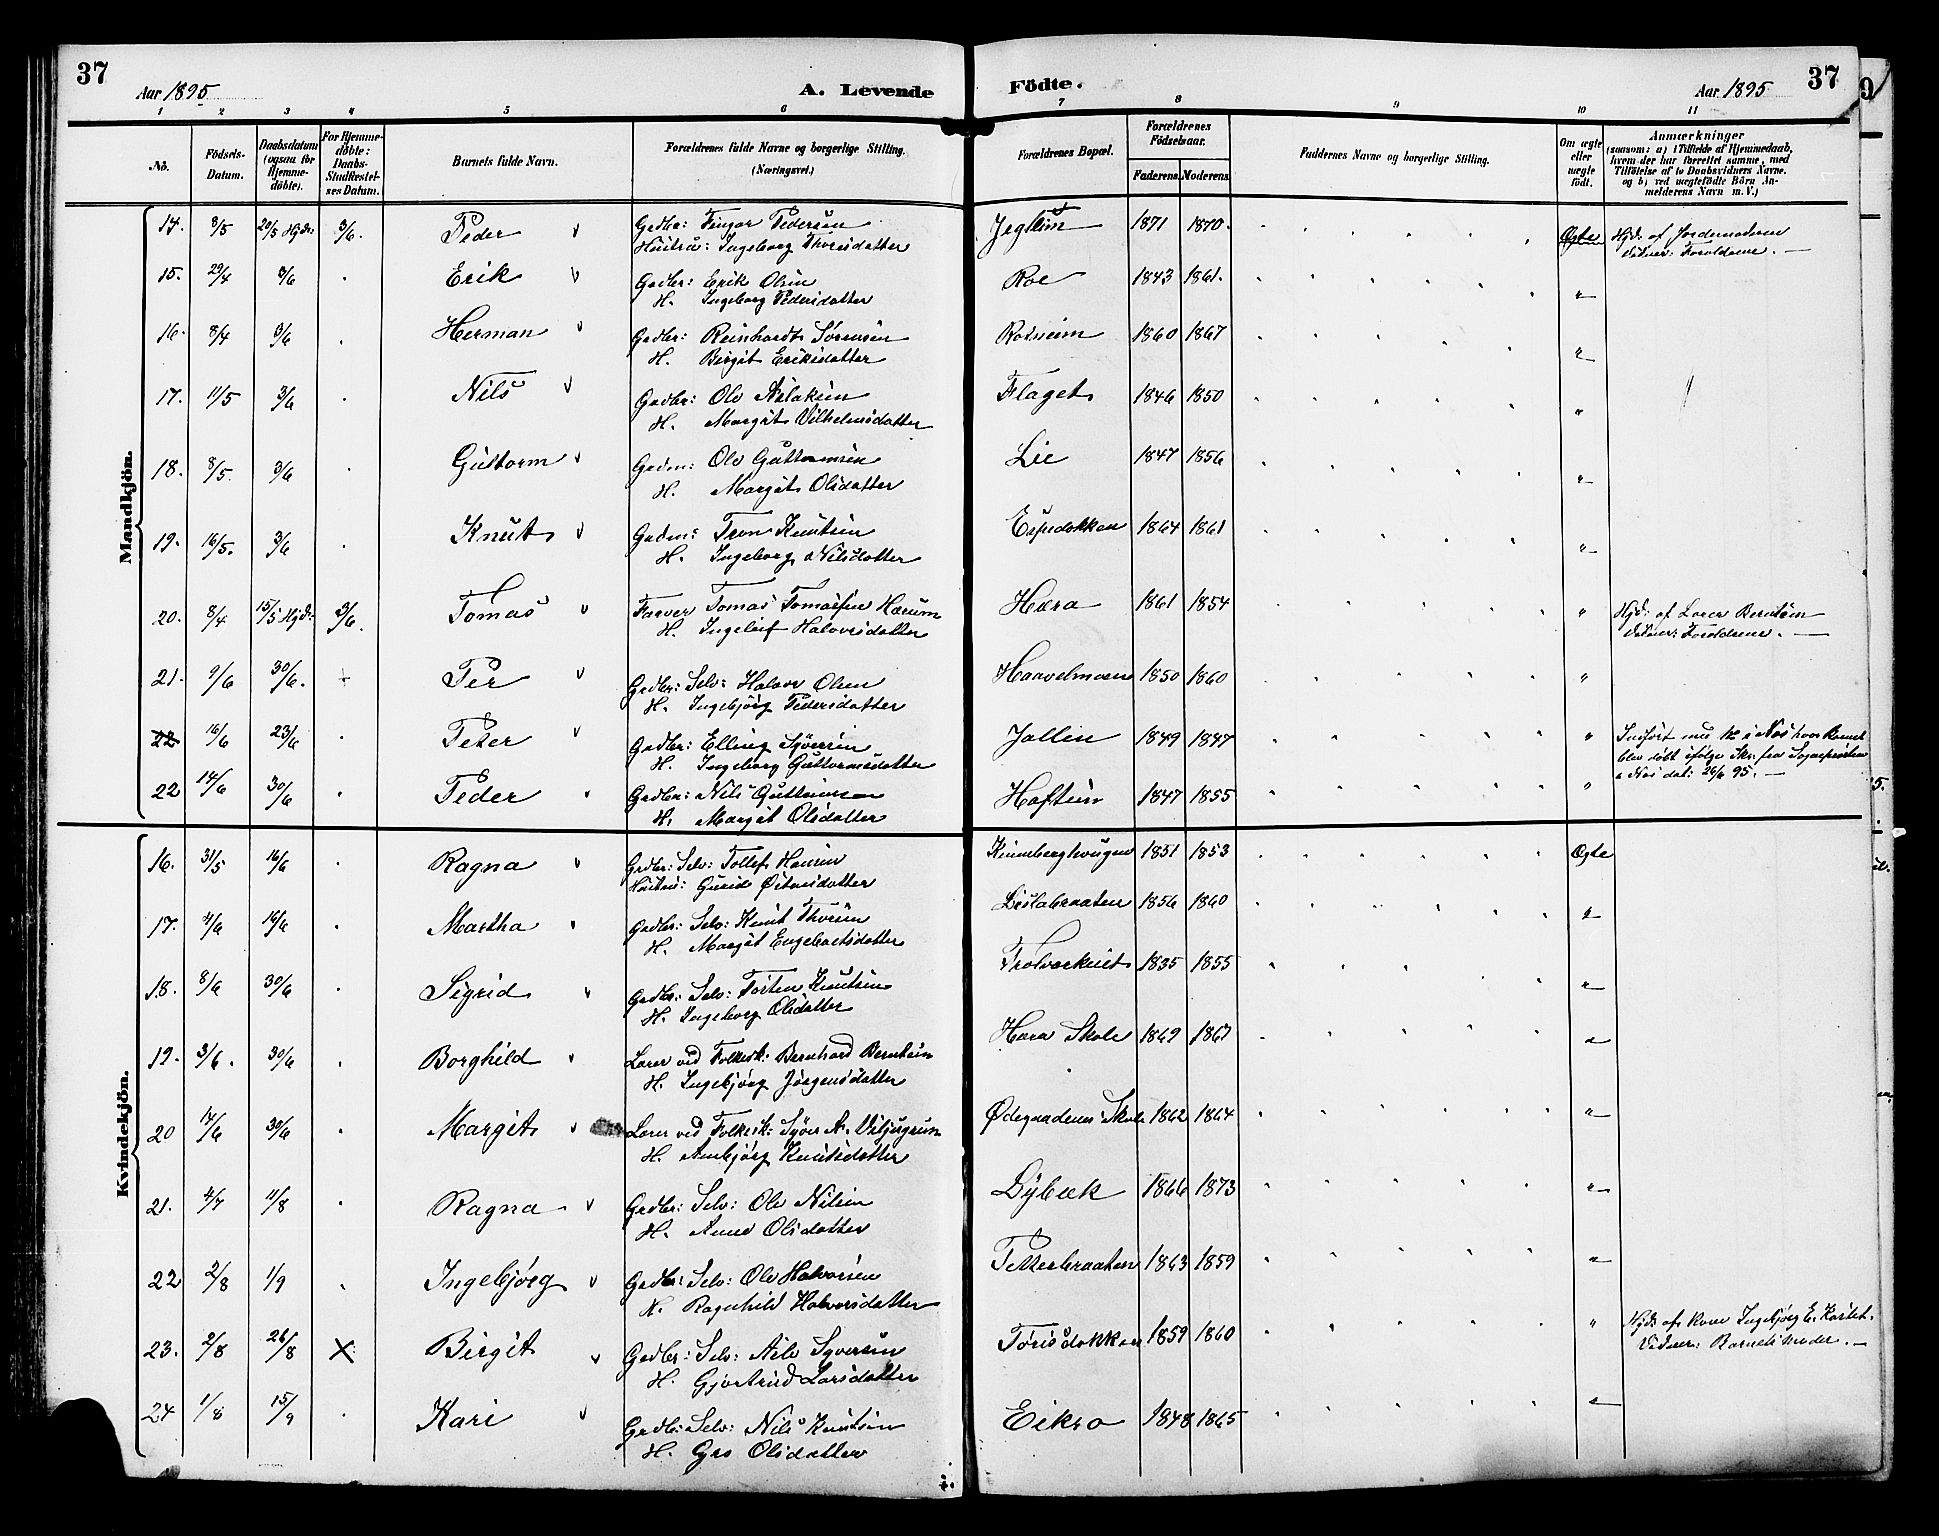 37
Aar 1895
A. Levende
Födte.
Aar 1895
37
1 2 3 4 5 6 7 8 9 10 11
No.
Födsels-Datum.
Daabsdatum (ogsaa for Hjemmedöbte).
For Hjemmedöbte: Daabs-Stadfæstelses Datum.
Barnets fulde Navn.
Forældrenes fulde Navne og borgerlige Stilling. (Næringsvei.)
Forældrenes Bopæl.
Forældrenes Födselsaar.
Faderens. Moderens.
Faddernes Navne og borgerlige Stilling.
Om ægte eller uægte födt.
Anmærkninger
(saasom: a) i Tilfælde af Hjemmedaab, hvem der har forrettet samme, med Tilföielse af to Daabsvidners Navne. og b) ved uægtefödte Börn Anmelderens Navn m. V.)
Mandkjön.
14. 8/5 20/5 Hjd: 3/6. Peder Grdbr: Fingar Pedersen Jeglum 1871 1870. Ægte Hjd: af Jordemoderen
Hustru: Ingeborg Thorsdatter Vidner: Forældrene. —
15. 29/4 3/6 Erik Grdbr: Erik Olsen Roe 1843 1861. "
H. Ingeborg Pedersdatter
16. 8/4 3/6 Herman Grdbr: Reinhardt Sørensen Rotneim 1860 1867 "
H. Birgit Eriksdatter
17. 11/5 3/6 Nils Grdbr: Olv Aslaksen Flaget 1846 1850 "
H. Margit Vilhelmsdatter
18. 8/5 3/6 Guttorm Grdm: Olv Guttormsen Lie 1847 1856 "
H. Margit Olsdatter
19. 16/5. 3/6 Knut Grdm: Tron Knutsen Espedokken 1864 1861 "
H. Ingeborg Nilsdatter
20. 8/4 15/5 Hjd: 3/6. Tomas Farver Tomas Tomassen Hærum Hæra 1861 1854 " Hjd: af Lærer Berntsen
H. Ingeleif Halvorsdatter Vidner: Forældrene. —
21. 9/6 30/6. Per Grdbr: Selv: Halvor Olsen Haavelmoen 1850 1860 "
H. Ingebjörg Pedersdatter
22 16/6 23/6 Peter Grdbr: Elling Syversen Jallin 1849 1847 " Indført nu 12 i Næs hvor Barnet
H. Ingeborg Guttormsdatter blev døbt ifølge Skr. fra Sognepræsten
i Næs dat: 26/6 95. —
22 14/6 30/6 Peder Grdbr: Nils Guttormsen Haftun 1847 1855 "
H. Margit Olsdatter
Kvindekjön.
16. 31/5 16/6 Ragna Grdbr: Selv: Tollef Hansen Kinnberghaugen 1851 1853 Ægte
Hustru: Gurid Østensdatter
17. 4/6 16/6 Martha Grdbr: Selv: Knut Thorsen Lislabraaten 1856 1860 "
H. Margit Engebretsdatter
18. 8/6 30/6 Sigrid Grdbr: Selv: Torsten Knutsen 1835 1855 "
H. Ingeborg Olsdatter
19. 3/6. 30/6 Borghild Lærer ved Folkesk: Bernhard Berntsen Hæra Skole 1869 1867 "
H. Ingebjörg Jörgensdatter
20 17/6 30/6 Margit Lærer ved Folkesk: Syver A. Ødegaardenes Skole 1862 1864 "
H. Anebjörg Knutsdatter
21. 4/7 11/8 Ragna Grdbr: Selv: Olv Nilsen Lybæk 1866 1873 "
H. Anne Olsdatter
22 2/8 1/9 Ingebjörg Grdbr: Selv: Olv Halvorsen Petterbraaten 1863 1859 "
H. Ragnhild Halvorsdatter
23. 2/8 26/8 X Birgit Grdbr: Selv: Nils Syversen Torisdokken 1859 1860 " Hjd: af Kone Ingebjörg E.
H. Gjertrud Larsdatter Vidner: Barnets Moder. —
24 1/8 15/9 Kari Grdbr: Selv: Nils Knutsen Eikro 1848 1865 "
H. Gro Olsdatter